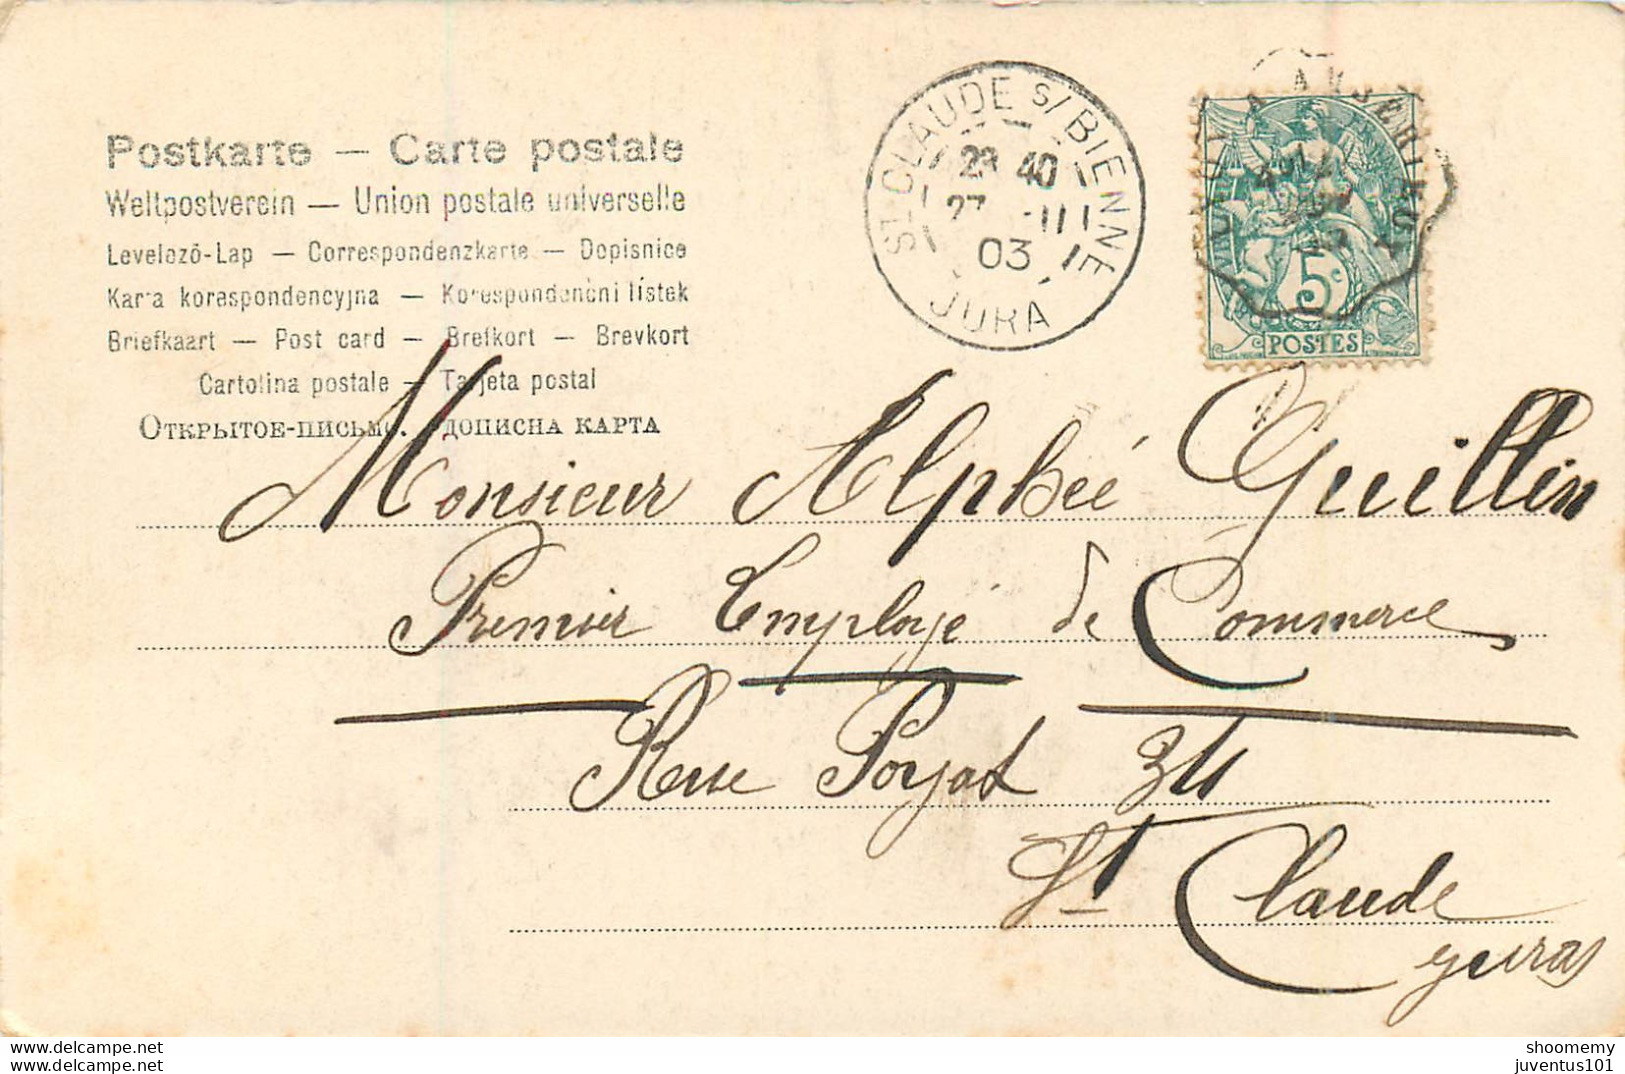 Postkarte — Carte postale
Weltpostverein — Union postale universelle
Levelező-Lap — Correspondenzkarte — Dopisnice
Karta korespondencyjna — Korespondenční lístek
Briefkaart — Post card — Brefkort — Brevkort
Cartolina postale — Tarjeta postal
Открытое-письмо. дописна карта
ST CLAUDE S/ BIENNE
23 40
27 III
03
JURA
5c
POSTES
Monsieur Alphée Guillin
Premier Employé de Commerce
Rue Poyat
St Claude
shoomemy
juventus101